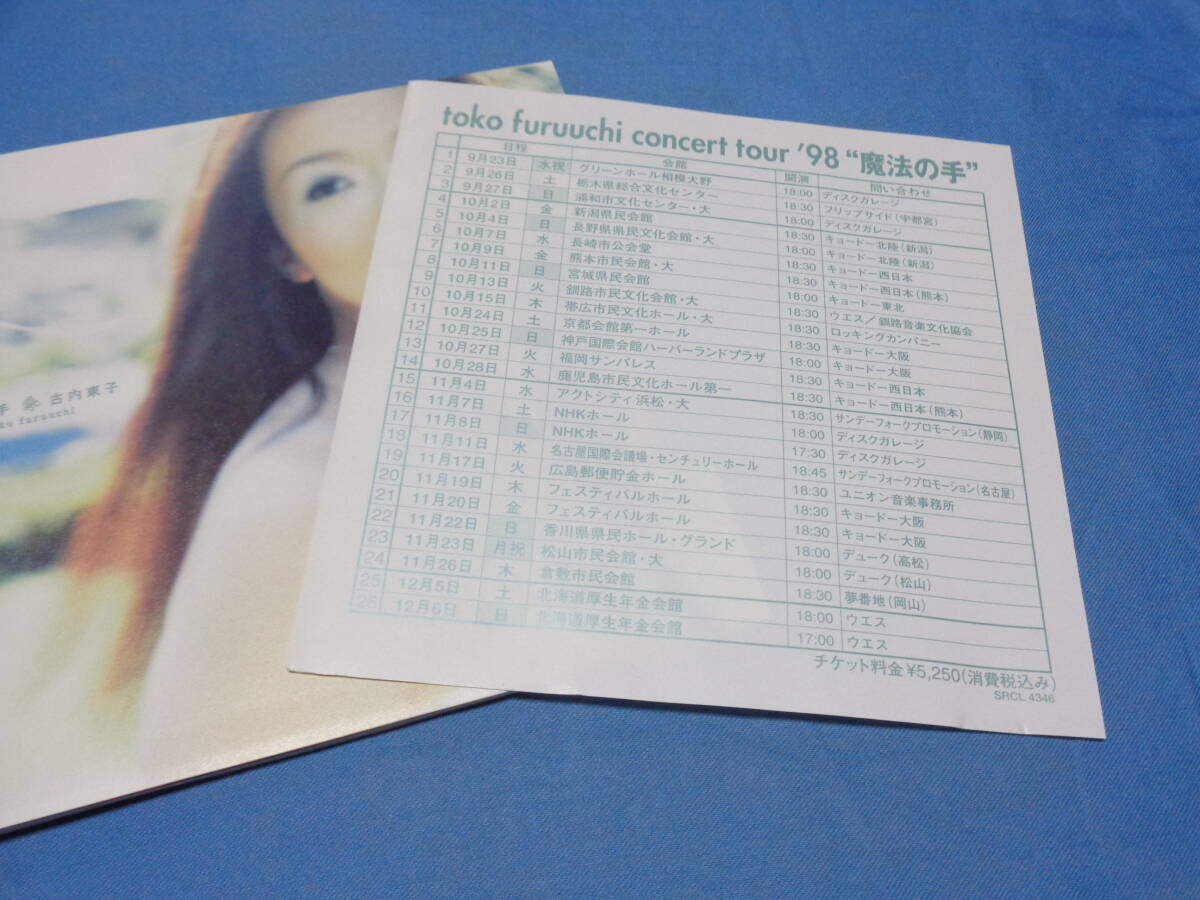 手 古内東子
ko furuuchi
toko furuuchi concert tour '98 “魔法の手”
日程 会館 開演 問い合わせ
1 9月23日 水祝 グリーンホール相模大野 18:00 ディスクガレージ
2 9月26日 土 栃木県総合文化センター 18:30 フリップサイド(宇都宮)
3 9月27日 日 浦和市文化センター・大 18:00 ディスクガレージ
4 10月2日 金 新潟県民会館 18:30 キョードー北陸(新潟)
5 10月4日 日 長野県県民文化会館・大 18:00 キョードー北陸(新潟)
6 10月7日 水 長崎市公会堂 18:30 キョードー西日本
7 10月9日 金 熊本市民会館・大 18:30 キョードー西日本(熊本)
8 10月11日 日 宮城県民会館 18:00 キョードー東北
9 10月13日 火 釧路市民文化会館・大 18:30 ウエス/釧路音楽文化協会
10 10月15日 木 帯広市民文化ホール・大 18:30 ロッキングカンパニー
11 10月24日 土 京都会館第一ホール 18:30 キョードー大阪
12 10月25日 日 神戸国際会館ハーバーランドプラザ 18:00 キョードー大阪
13 10月27日 火 福岡サンパレス 18:30 キョードー西日本
14 10月28日 水 鹿児島市民文化ホール第一 18:30 キョードー西日本(熊本)
15 11月4日 水 アクトシティ浜松・大 18:30 サンデーフォークプロモーション(静岡)
16 11月7日 土 NHKホール 18:00 ディスクガレージ
17 11月8日 日 NHKホール 17:30 ディスクガレージ
18 11月11日 水 名古屋国際会議場・センチュリーホール 18:45 サンデーフォークプロモーション(名古屋)
19 11月17日 火 広島郵便貯金ホール 18:30 ユニオン音楽事務所
20 11月19日 木 フェスティバルホール 18:30 キョードー大阪
21 11月20日 金 フェスティバルホール 18:30 キョードー大阪
22 11月22日 日 香川県県民ホール・グランド 18:00 デューク(高松)
23 11月23日 月祝 松山市民会館・大 18:00 デューク(松山)
24 11月26日 木 倉敷市民会館 18:30 夢番地(岡山)
25 12月5日 土 北海道厚生年金会館 18:00 ウエス
26 12月6日 日 北海道厚生年金会館 17:00 ウエス
チケット料金¥5,250(消費税込み)
SRCL 4346